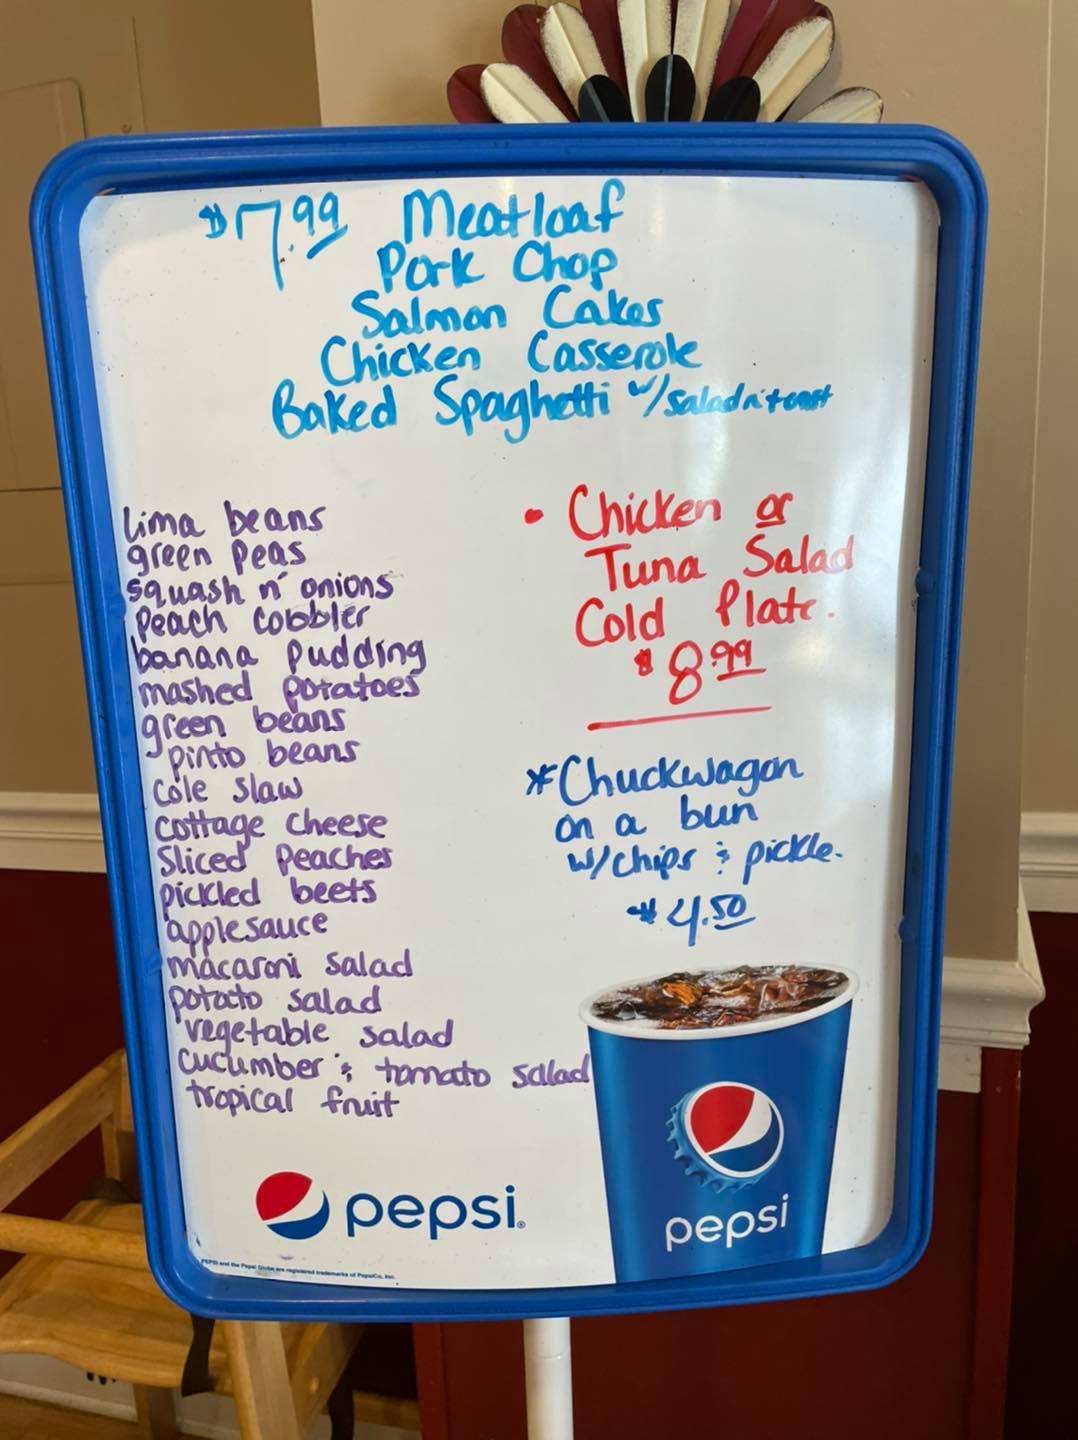 $7.99 Meatloaf
Pork Chop
Salmon Cakes
Chicken Casserole
Baked Spaghetti w/salad n' toast
lima beans
green peas
squash n' onions
peach cobbler
banana pudding
mashed potatoes
green beans
pinto beans
cole slaw
cottage cheese
sliced peaches
pickled beets
applesauce
macaroni salad
potato salad
vegetable salad
cucumber & tomato salad
tropical fruit
• Chicken or
Tuna Salad
Cold Plate.
$8.99
*Chuckwagon
on a bun
w/chips & pickle.
$4.50
pepsi
pepsi.
PEPSI and the Pepsi Globe are registered trademarks of PepsiCo, Inc.